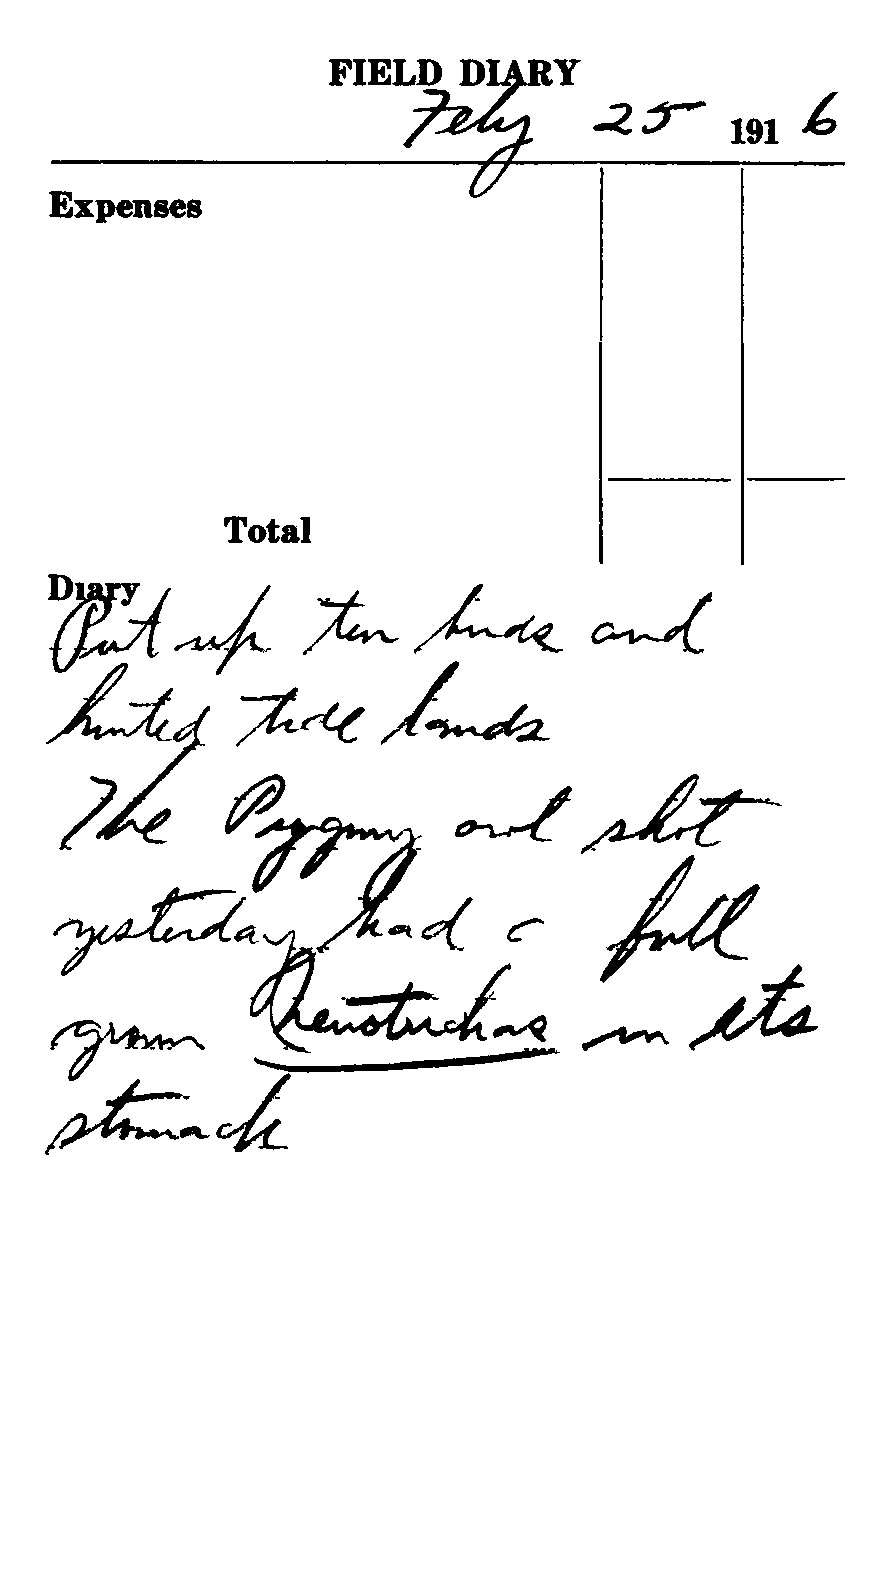 FIELD DIARY
Feby 25 1916
Expenses
Total
Diary
Put up ten birds and
hunted tide lands
The Pygmy owl shot
yesterday had a full
grown Neurotrichus in its
stomach